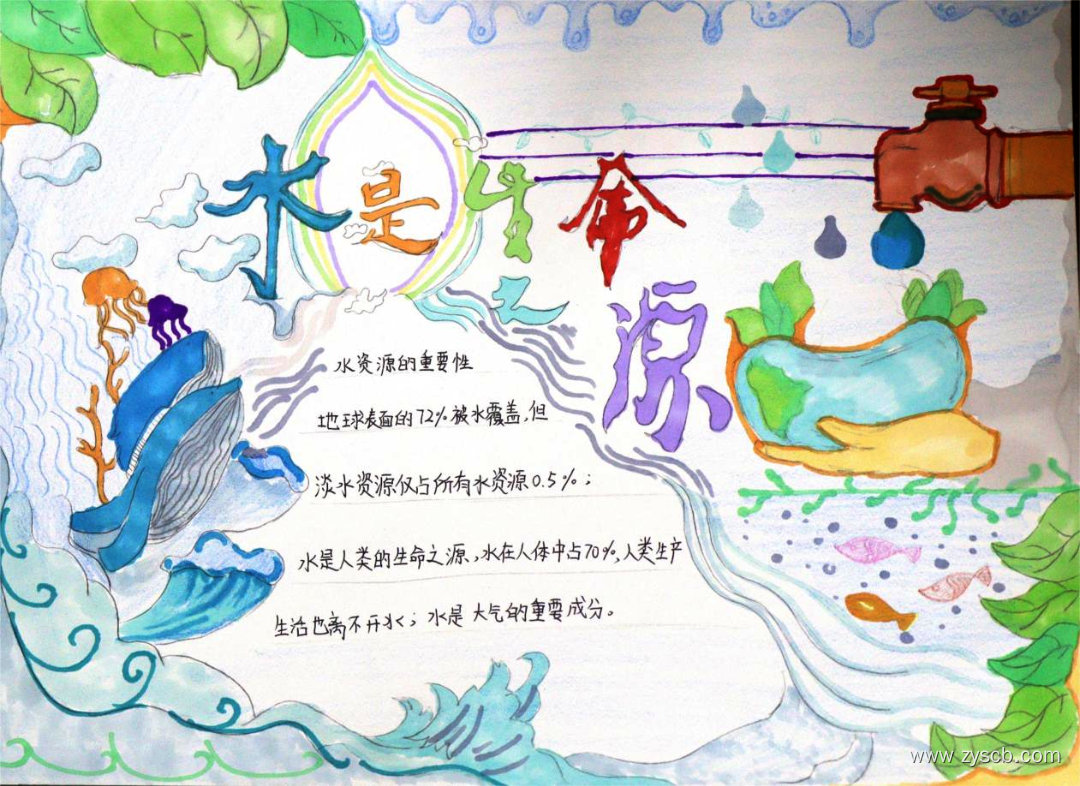 水是生命
之
源
水资源的重要性
地球表面的72%被水覆盖,但
淡水资源仅占所有水资源0.5%;
水是人类的生命之源,水在人体中占70%,人类生产
生活也离不开水;水是大气的重要成分。
www.zyscb.com